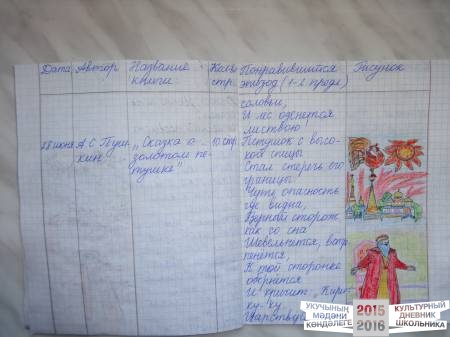 Дата Автор Название книги Кол-во стр. Понравившийся эпизод (1-2 предл) Рисунок
соловьи,
И лес оденется
листвою!
28 июня А С Пушкин „Сказка о золотом петушке" 10 стр. Петушок с высокой спицы
Стал стеречь его
границы.
Чуть опасность
где видна,
Верный сторож
как со сна
Шевельнется, встрепенется,
К той сторонке
обернется
И кричит: „Кири-
ку-ку.
Царствуй
УКУЧЫНЫҢ
МӘДӘНИ
КӨНДӘЛЕГЕ
2015
2016
КУЛЬТУРНЫЙ
ДНЕВНИК
ШКОЛЬНИКА